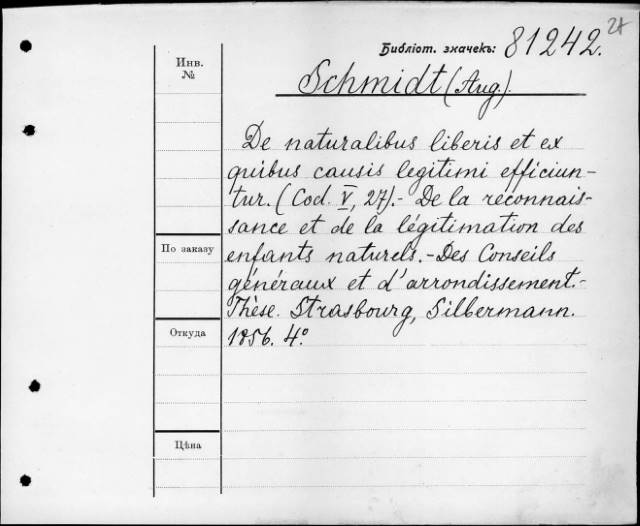 24
Библіот. значекъ: 81242.
Инв.
№
Schmidt (Aug.).
De naturalibus liberis et ex
quibus causis legitimi efficiun-
tur. (Cod. V, 27).- De la reconnais-
sance et de la légitimation des
enfants naturels.-Des Conseils
généraux et d'arrondissement.-
Thèse. Strasbourg, Silbermann.
1856. 4°.
По заказу
Откуда
Цѣна